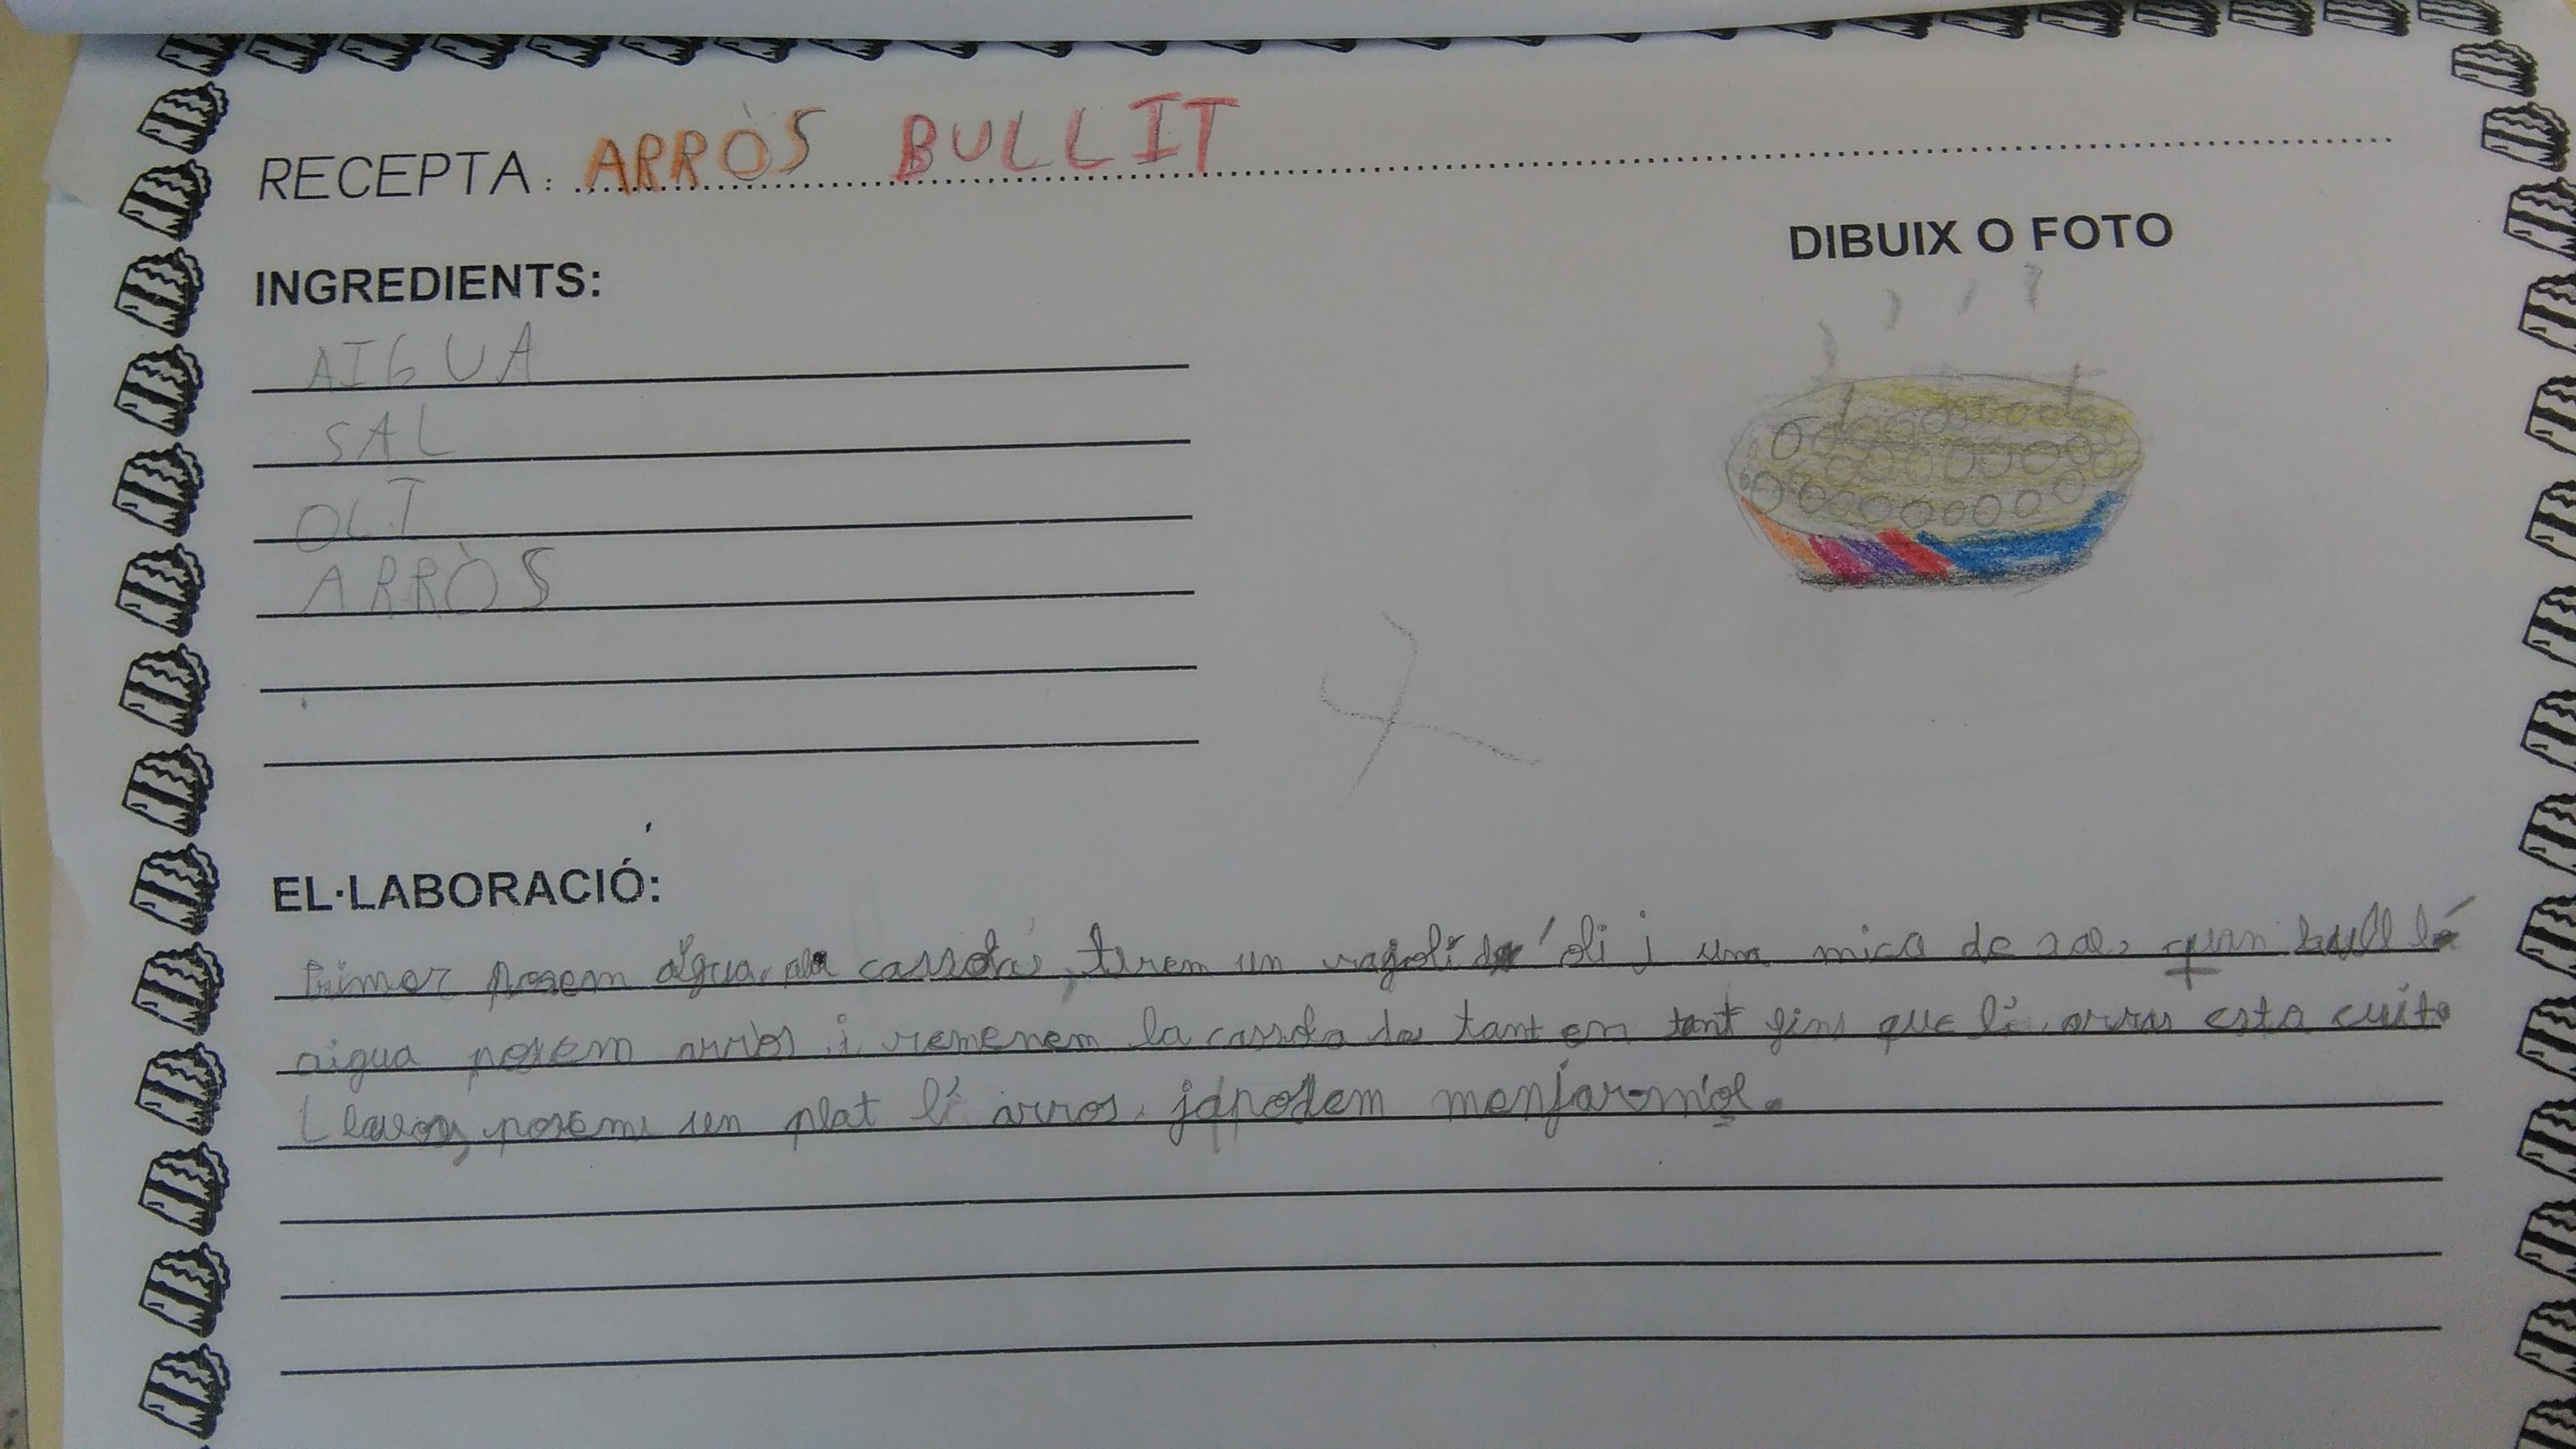 RECEPTA: ARRÒS BULLIT
DIBUIX O FOTO
INGREDIENTS:
AIGUA
SAL
OLI
ARRÒS
EL·LABORACIÓ:
Primer posem aigua a la cassola, tirem un ragolí d'oli i una mica de sal, quan bull l'
aigua posem arròs i remenem la cassola de tant en tant fins que l'arros esta cuit.
Llavors, posem un plat l'arros. ja podem menjar-nos'ol.